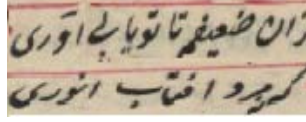 زان ضعیفم تا تو تابی آوری
که نه مرد افتاب انوری